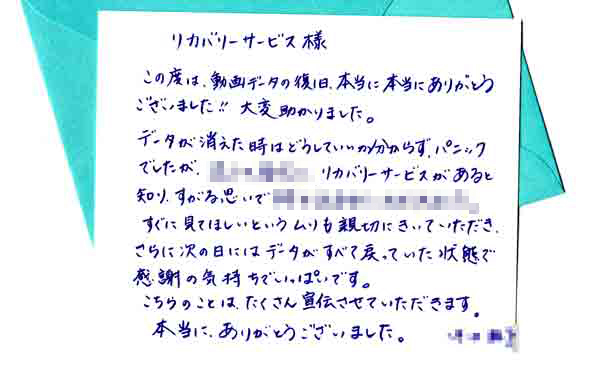 リカバリーサービス様
この度は、動画データの復旧、本当に本当にありがとう
ございました!! 大変助かりました。
データが消えた時はどうしていいか分からず、パニック
でしたが、 リカバリーサービスがあると
知り、すがる思いで
すぐに見てほしいというムリも親切にきいていただき、
さらに次の日にはデータがすべて戻っていた状態で
感謝の気持ちでいっぱいです。
こちらのことは、たくさん宣伝させていただきます。
本当に、ありがとうございました。